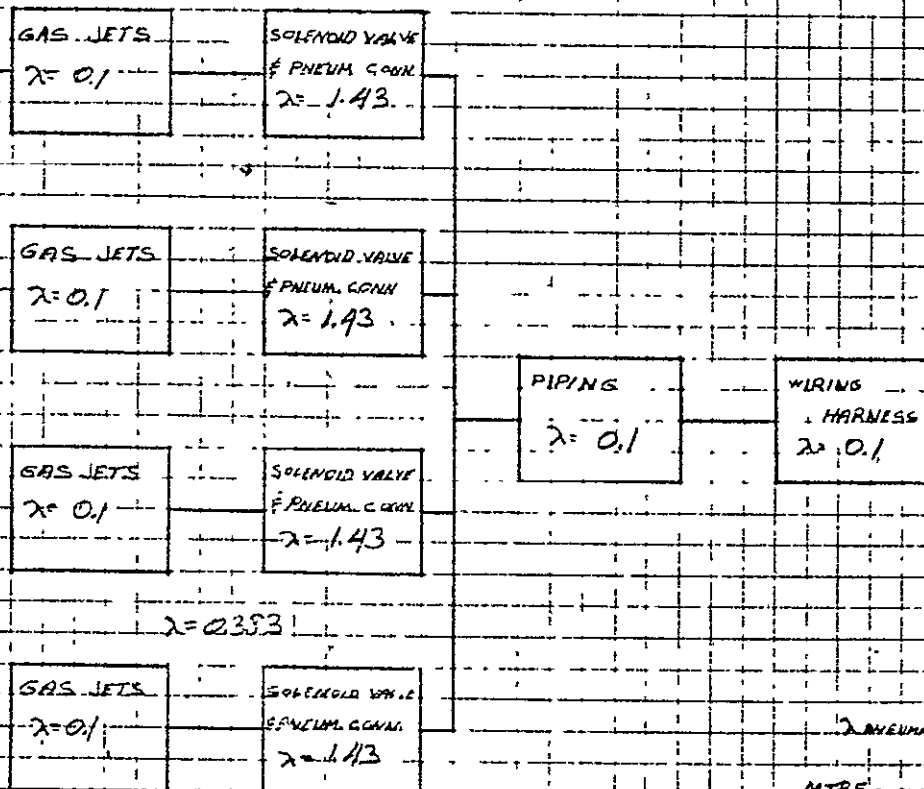 GAS JETS
λ= 0.1
SOLENOID VALVE
& PNEUM CONN
λ= 1.43
GAS JETS
λ=0.1
SOLENOID VALVE
& PNEUM. CONN
λ= 1.43
PIPING
λ= 0.1
WIRING
HARNESS
λ= 0.1
GAS JETS
λ= 0.1
SOLENOID VALVE
& PNEUM. CONN
λ= 1.43
GAS JETS
λ=0.1
SOLENOID VALVE
& PNEUM. CONN.
λ= 1.43
MTBF